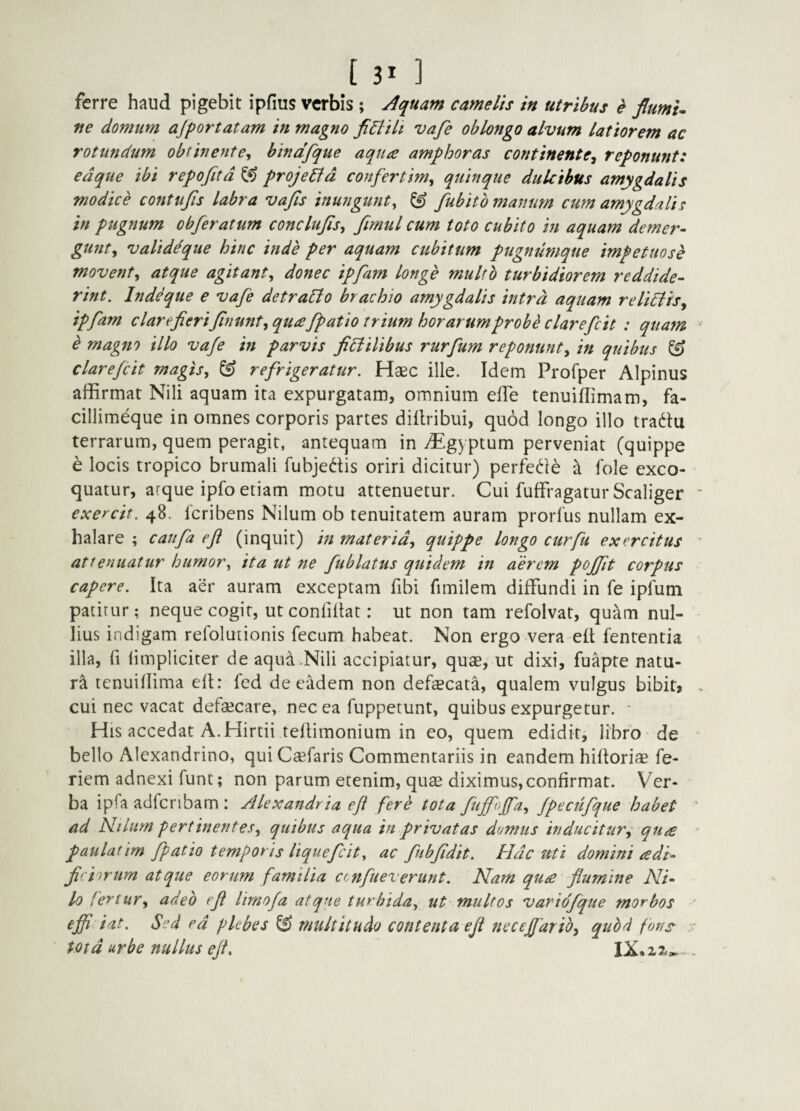 [ 31 ]
ferre haud pigebit ipſius verbis ; Aquam camelis in utribus è flumi-
ne domum aſportatam in magno fictili vaſe oblongo alvum latiorem ac
rotundum obtinente, binaſque aquæ amphoras continente, reponunt:
eâque ibi repoſitâ & projectâ confertim, quinque dulcibus amygdalis
modicè contuſis labra vaſis inungunt, & ſubitò manum cum amygdalis
in pugnum obſeratum concluſis, ſimul cum toto cubito in aquam demer-
gunt, validéque hinc indè per aquam cubitum pugnúmque impetuosè
movent, atque agitant, donec ipſam longè multò turbidiorem reddide-
rint. Indéque e vaſe detracto brachio amygdalis intrà aquam relictis,
ipſam clarefieri ſinunt, quæ ſpatio trium horarum probè clareſcit : quam
è magno illo vaſe in parvis fictilibus rurſum reponunt, in quibus &
clareſcit magis, & refrigeratur. Hæc ille. Idem Proſper Alpinus
affirmat Nili aquam ita expurgatam, omnium eſſe tenuiſſimam, fa-
cilliméque in omnes corporis partes diſtribui, quòd longo illo tractu
terrarum, quem peragit, antequam in Ægyptum perveniat (quippe
è locis tropico brumali ſubjectis oriri dicitur) perfectè à ſole exco-
quatur, atque ipſo etiam motu attenuetur. Cui ſuffragatur Scaliger
exercit. 48. ſcribens Nilum ob tenuitatem auram prorſus nullam ex-
halare ; cauſa eſt (inquit) in materiâ, quippe longo curſu exercitus
attenuatur humor, ita ut ne ſublatus quidem in aërem poſſit corpus
capere. Ita aër auram exceptam ſibi ſimilem diffundi in ſe ipſum
patitur; neque cogit, ut conſiſtat : ut non tam reſolvat, quàm nul-
lius indigam reſolutionis ſecum habeat. Non ergo vera eſt ſententia
illa, ſi ſimpliciter de aquâ Nili accipiatur, quæ, ut dixi, ſuâpte natu-
râ tenuiſſima eſt: ſed de eâdem non defæcatâ, qualem vulgus bibit,
cui nec vacat defæcare, nec ea ſuppetunt, quibus expurgetur.
His accedat A. Hirtii teſtimonium in eo, quem edidit, libro de
bello Alexandrino, qui Cæſaris Commentariis in eandem hiſtoriæ ſe-
riem adnexi ſunt; non parum etenim, quæ diximus, confirmat. Ver-
ba ipſa adſcribam : Alexandria eſt ferè tota ſuffoſſa, ſpecúſque habet
ad Nilum pertinentes, quibus aqua in privatas domus inducitur, quæ
paulatim ſpatio temporis liqueſcit, ac ſubſidit. Hâc uti domini ædi-
ficiorum atque eorum familia conſueverunt. Nam quæ flumine Ni-
lo fertur, adeò eſt limoſa atque turbida, ut multos varióſque morbos
efficiat. Sed eâ plebes & multitudo contenta eſt neceſſariò, quòd fons
totâ urbe nullus eſt. IX. 22.